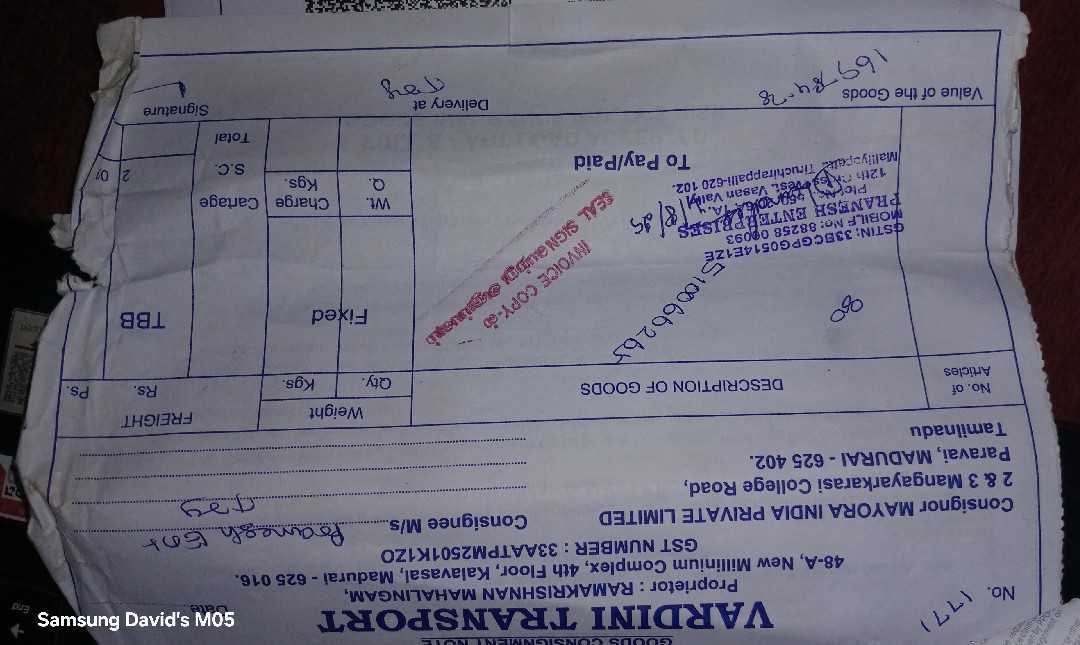 GOODS CONSIGNMENT NOTE
No. 1771
VARDINI TRANSPORT
Date
Proprietor : RAMAKRISHNAN MAHALINGAM,
48-A, New Millinium Complex, 4th Floor, Kalavasal, Madurai - 625 016.
GST NUMBER : 33AATPM2501K1ZO
Consignor MAYORA INDIA PRIVATE LIMITED
2 & 3 Mangayarkarasi College Road,
Paravai, MADURAI - 625 402.
Tamilnadu
Consignee M/s. Pranesh Ent
Try
No. of Articles
DESCRIPTION OF GOODS
Weight
Qty. Kgs.
FREIGHT
Rs. Ps.
5100660265
Fixed
TBB
INVOICE COPY-ல்
SEAL SIGN
GSTIN: 33BCGPG0514E1ZE
MOBILE No: 88258 00093
PRANESH ENTERPRISES
12th Cross West, Vasan Valley
Tiruchirappalli-620 102.
To Pay/Paid
Wt. Q.
Charge Kgs.
Cartage
S.C.
Total
Value of the Goods
Delivery at Try
Signature
Samsung David's M05